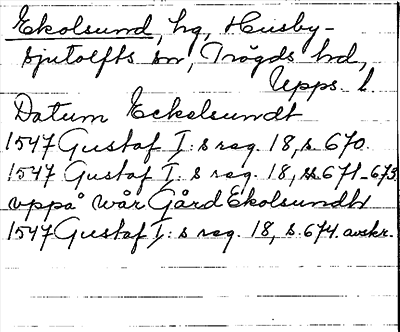 Ekolsund, hg, Husby-
Sjutolfts sn, Trögds hd,
Upps. l.
Datum Eckelsundt
1547 Gustaf I:s reg. 18, s. 670.
1547 Gustaf I:s reg. 18, ss. 671-673.
vppå wår Gård Ekolsundh
1547 Gustaf I:s reg. 18, s. 674. avskr.